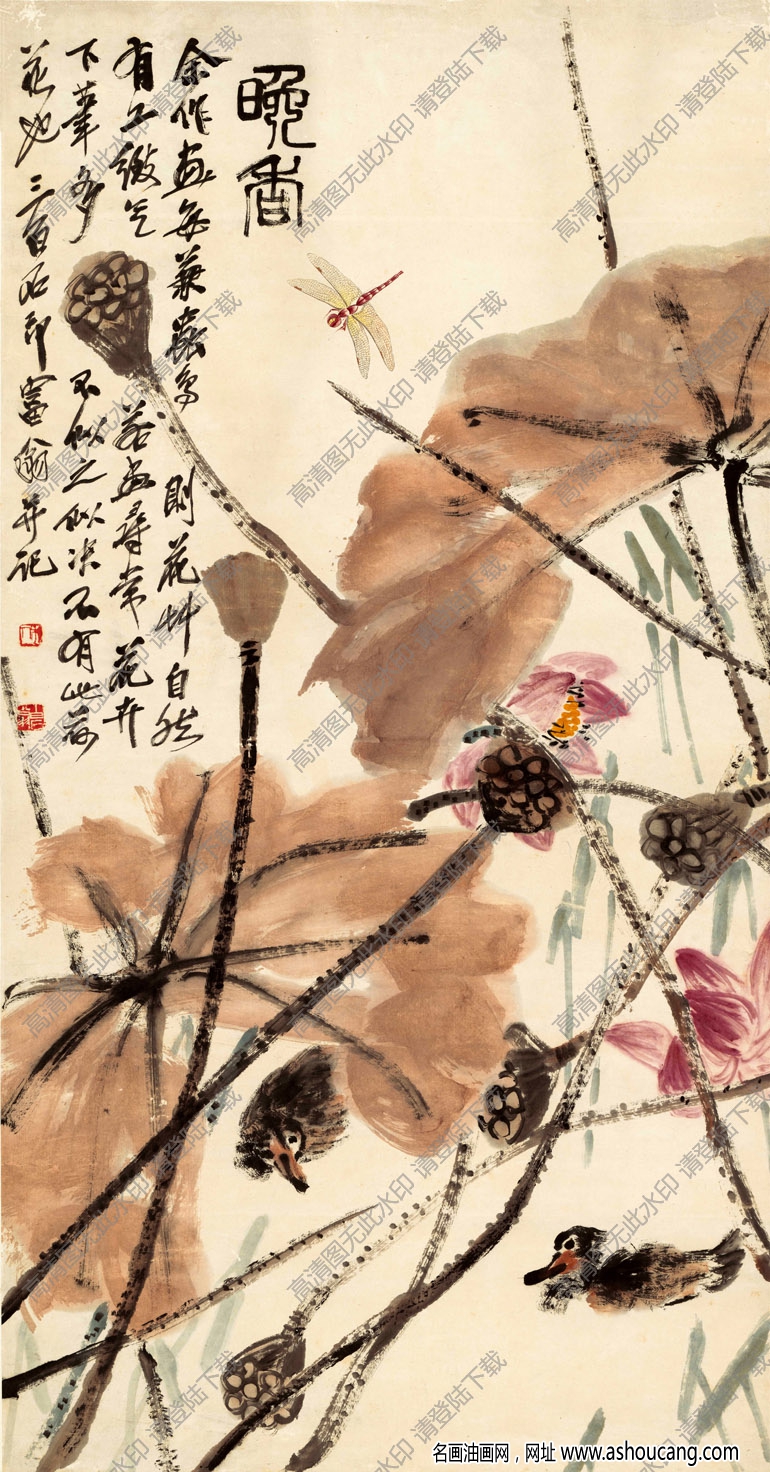 晚香
余作画每兼蟲鳥則花艸自然
有工緻气若画尋常花卉
下筆多不似之似决不有此荷
花也三百石印富翁并記
高清图无此水印 请登陆下载
名画油画网，网址 www.ashoucang.com